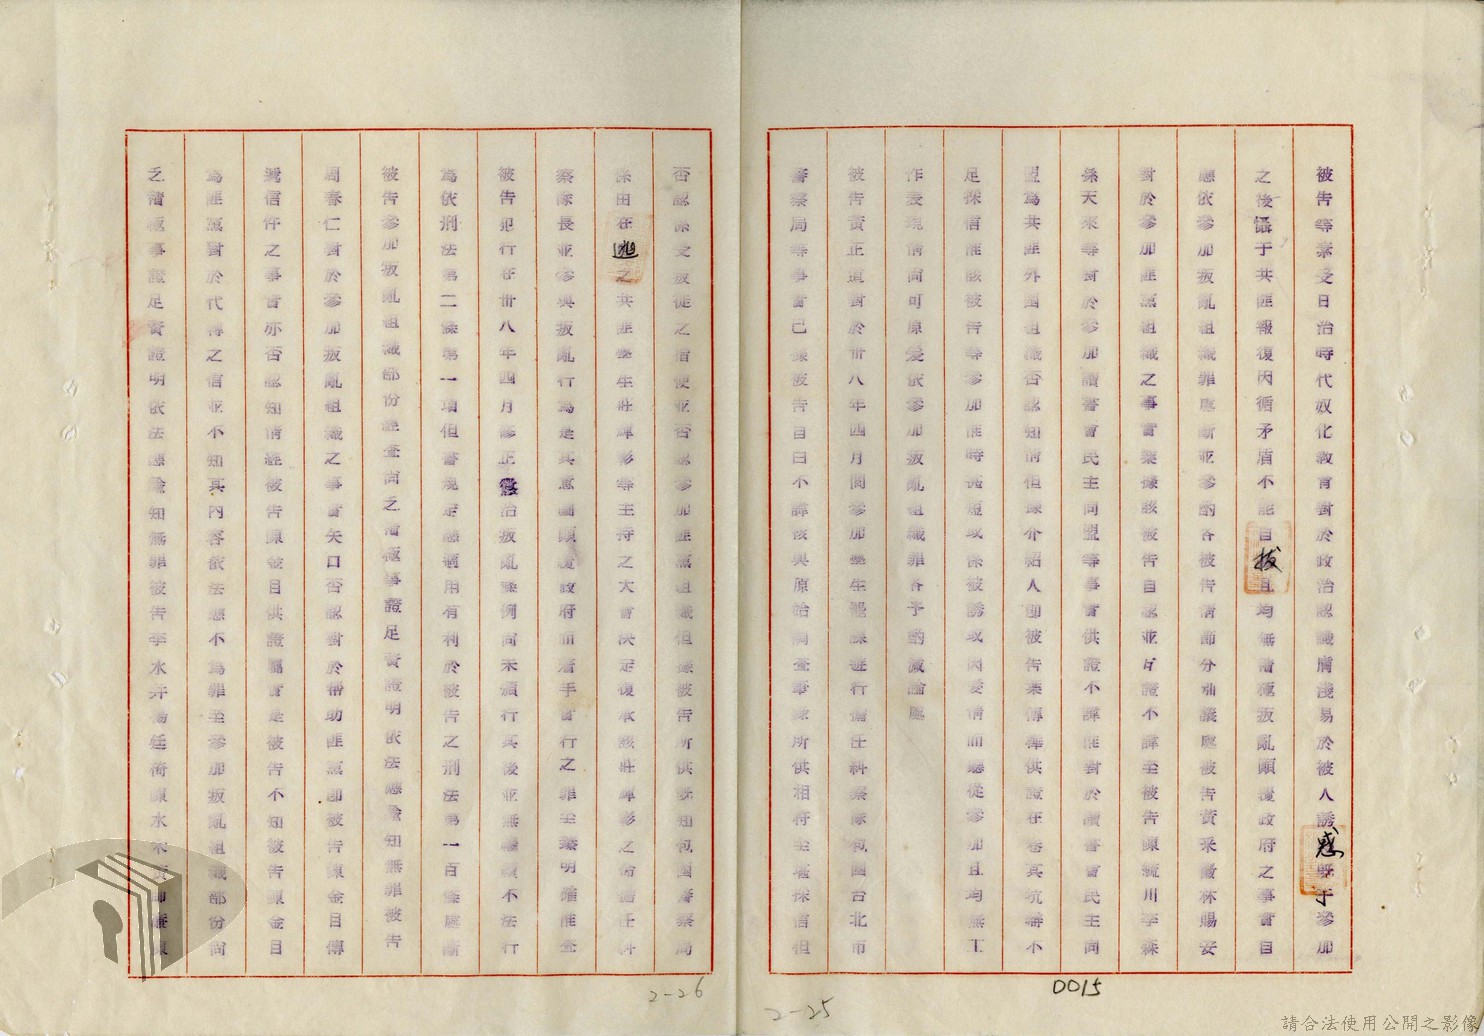 被告等業受日治時代奴化教育對於政治認識膚淺易於被人誘惑既于參加
之後懾于共匪報復因循矛盾不能自拔且均無積極叛亂顛覆政府之事實自
應依參加叛亂組織罪處斷並參酌各被告情節分別議處被告黃采薇林賜安
對於參加匪黨組織之事實業據該被告自認並 證不諱至被告陳毓川李森
孫天來等對於參加讀書會民主同盟等事實供證不諱匪對於讀書會民主同
盟為共匪外圍組織否認知情但據介紹人即被告葉傳樺供證在卷其抗辯不
足採信惟該被告等參加惟時 短或係被誘或因愛情而聽從參加且均無工
作表現情尚可原爰依參加叛亂組織罪各予酌減論處
被告黃正道對於卅八年四月間參加學生罷課遊行擔任糾察隊包圍台北市
警察局等事實已據被告自白不諱核與原始調查筆錄所供相符至堪採信但
否認係受叛徒之指使並否認參加匪黨組織但據被告所供既知包圍警察局
係由在逃之共匪學生莊輝彰等主持之大會決定復承該莊輝彰之命擔任糾
察隊長並參與叛亂行為是其意圖顛覆政府而着手實行之罪至臻明確惟查
被告犯行在卅八年四月修正懲治叛亂條例尚未頒行其後並無繼續不法行
為依刑法第二條第一項但書規定應適用有利於被告之刑法第一百條處斷
被告參加叛亂組織部份經查尚乏積極事證足資證明依法應諭知無罪被告
周春仁對於參加叛亂組織之事實矢口否認對於幫助匪黨即被告陳金目傳
遞信件之事實亦否認知情經被告陳金目供證屬實是被告不知被告陳金目
為匪黨對於代轉之信並不知其內容依法應不為罪至參加叛亂組織部份尚
乏積極事證足資證明依法應諭知無罪被告李水井楊廷椅陳水木黃師廉陳
0015
2-26
2-25
請合法使用公開之影像